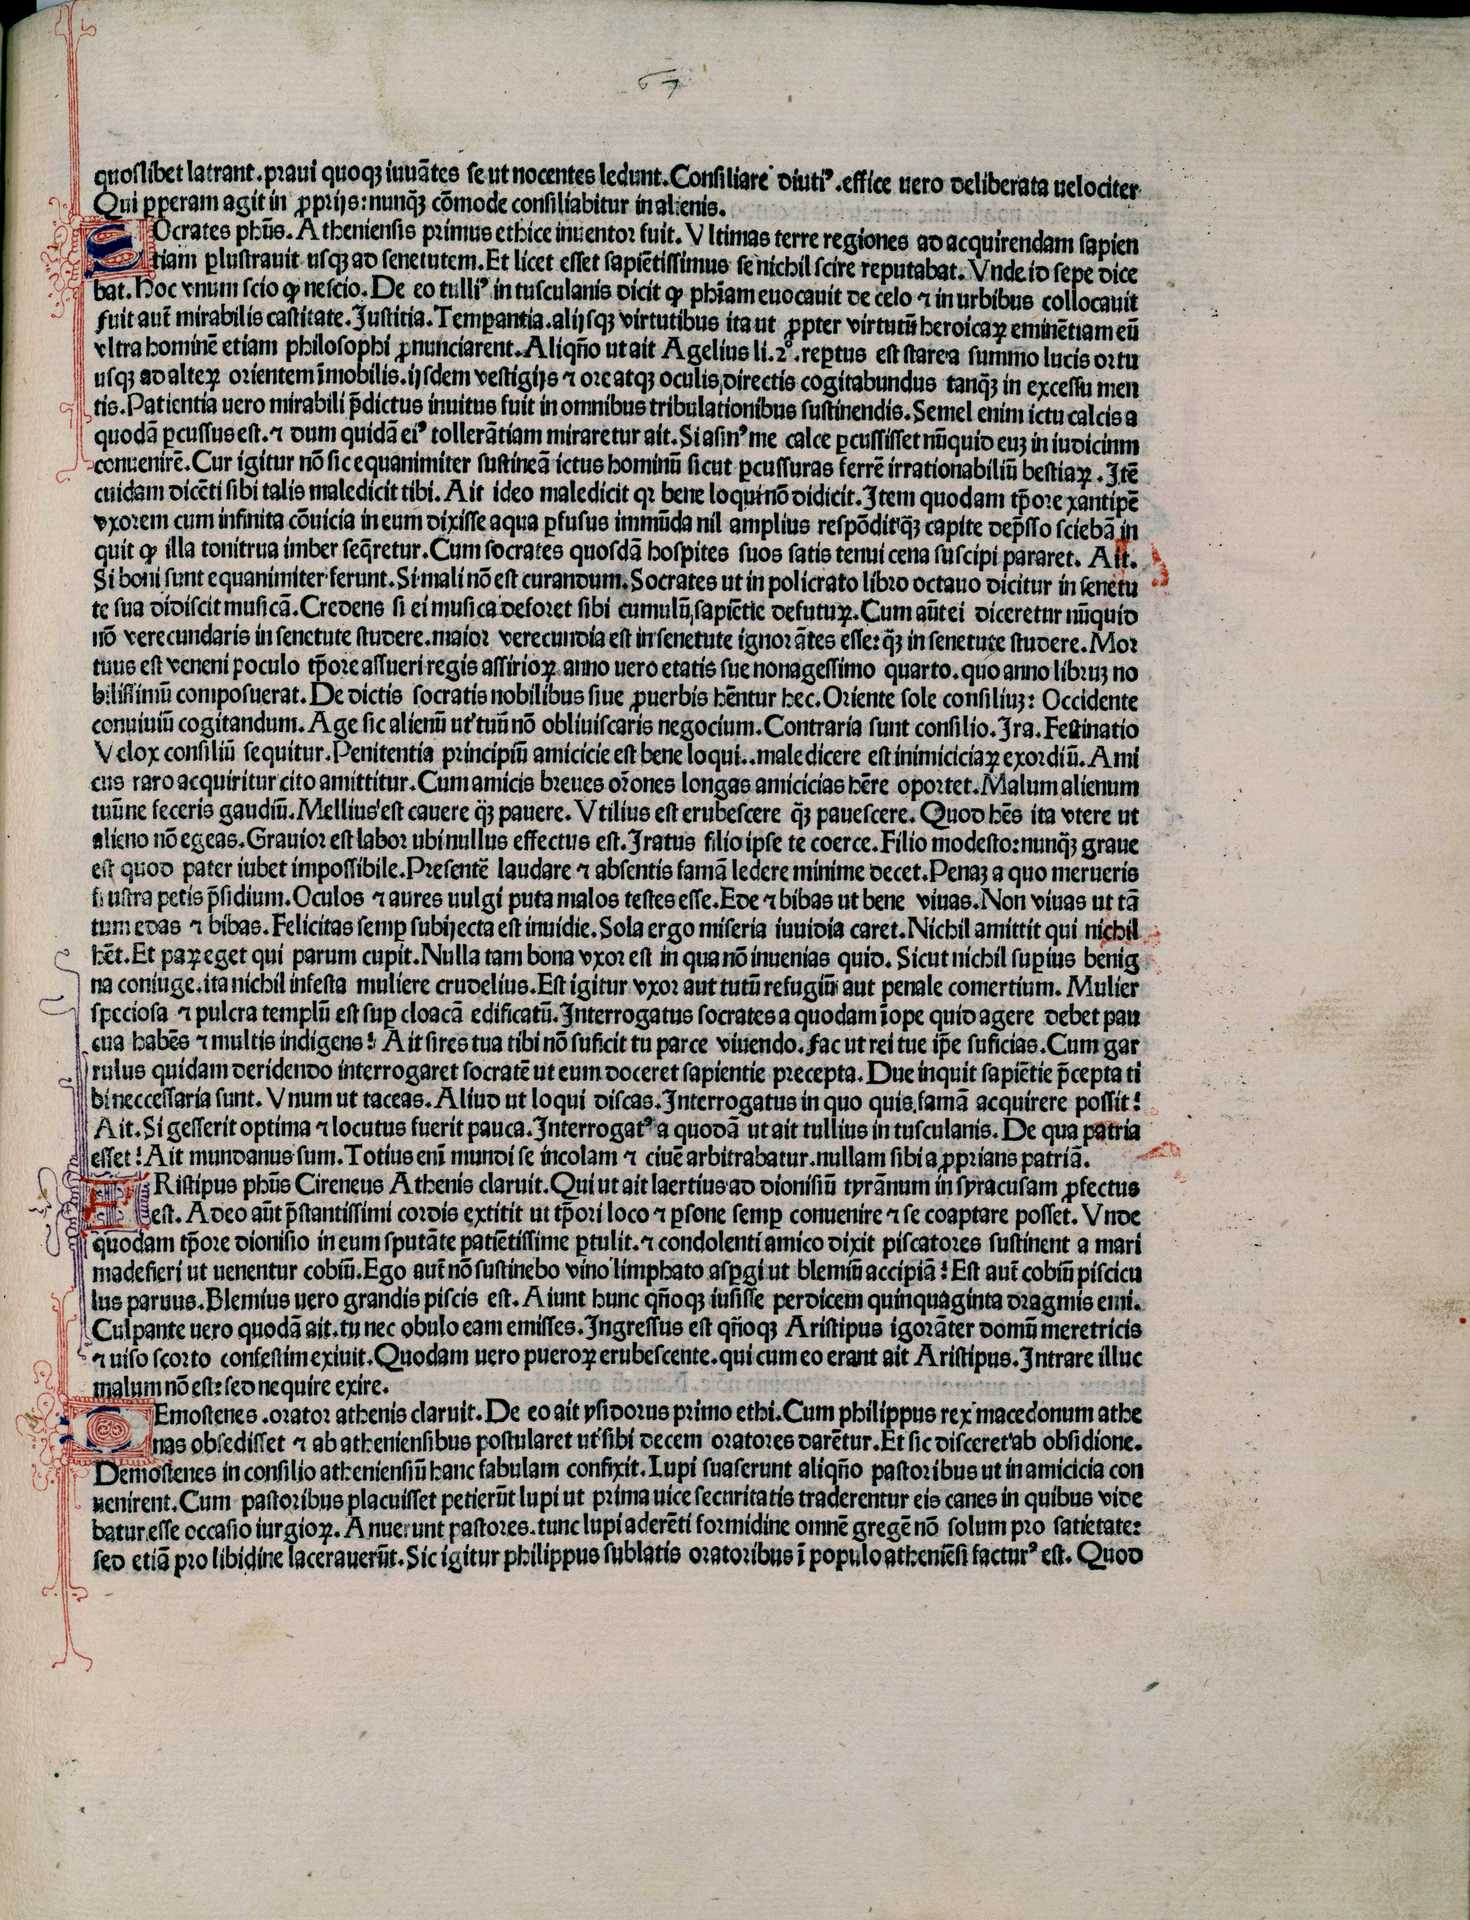 67
quoslibet latrant. praui quoqꝫ iuuãtes se ut nocentes ledunt. Consiliare diutiꝰ. effice uero deliberata uelociter
Qui ꝑperam agit in ꝓprijs: nunqꝫ cõmode consiliabitur in alienis.
SOcrates phũs. Atheniensis primus ethice inuentor fuit. Vltimas terre regiones ad acquirendam sapien
tiam ꝑlustrauit usqꝫ ad senetutem. Et licet esset sapiẽtissimus se nichil scire reputabat. Vnde id sepe dice
bat. hoc vnum scio ꝙ nescio. De eo tulliꝰ in tusculanis dicit ꝙ phĩam euocauit de celo ⁊ in urbibus collocauit
fuit aut̃ mirabilis castitate. Justitia. Temꝑantia. alijsqꝫ virtutibus ita ut ꝓpter virtutũ heroicaꝝ eminẽtiam eũ
vltra hominẽ etiam philosophi ꝓnunciarent. Aliqño ut ait Agelius li. 2°. reꝑtus est stare a summo lucis ortu
usqꝫ ad alteꝝ orientem ĩmobilis. ijsdem vestigijs ⁊ ore atqꝫ oculis directis cogitabundus tanqꝫ in excessu men
tis. Patientia uero mirabili p̃dictus inuitus fuit in omnibus tribulationibus sustinendis. Semel enim ictu calcis a
quodã ꝑcussus est. ⁊ dum quidã eiꝰ tollerãtiam miraretur ait. Si asinꝰ me calce ꝑcussisset nũquid euꝫ in iudicium
conuenirẽ. Cur igitur nõ sic equanimiter sustineã ictus hominũ sicut ꝑcussuras ferrẽ irrationabiliũ bestiaꝝ. Jtẽ
cuidam dicẽti sibi talis maledicit tibi. Ait ideo maledicit qꝛ bene loqui nõ didicit. Item quodam tp̃ore xantipẽ
vxorem cum infinita cõuicia in eum dixisse aqua ꝑfusus immũda nil amplius respõdit qꝫ capite dep̃sso sciebã in
quit ꝙ illa tonitrua imber seq̃retur. Cum socrates quosdã hospites suos satis tenui cena suscipi pararet. Ait.
Si boni sunt equanimiter ferunt. Si mali nõ est curandum. Socrates ut in policrato libro octauo dicitur in senetu
te sua didiscit musicã. Credens si ei musica deforet sibi cumulũ sapiẽtie defutuꝝ. Cum aũt ei diceretur nũquid
nõ verecundaris in senetute studere. maior verecundia est in senetute ignorãtes esse: qꝫ in senetute studere. Mor
tuus est veneni poculo tp̃ore assueri regis assirioꝝ anno uero etatis sue nonagessimo quarto. quo anno libruꝫ no
bilissimũ composuerat. De dictis socratis nobilibus siue ꝓuerbis hẽntur hec. Oriente sole consiliuꝫ: Occidente
conuiuiũ cogitandum. Age sic alienũ ut tuũ nõ obliuiscaris negocium. Contraria sunt consilio. Jra. Festinatio
Velox consiliũ sequitur. Penitentia principiũ amicicie est bene loqui.. maledicere est inimiciciaꝝ exordiũ. Ami
cus raro acquiritur cito amittitur. Cum amicis breues orõnes longas amicicias hẽre oportet. Malum alienum
tuũ ne feceris gaudiũ. Mellius est cauere qꝫ pauere. Vtilius est erubescere qꝫ pauescere. Quod hẽs ita vtere ut
alieno nõ egeas. Grauior est labor ubi nullus effectus est. Jratus filio ipse te coerce. Filio modesto: nunqꝫ graue
est quod pater iubet impossibile. Presentẽ laudare ⁊ absentis famã ledere minime decet. Penaꝫ a quo merueris
frustra petis p̃sidium. Oculos ⁊ aures uulgi puta malos testes esse. Ede ⁊ bibas ut bene viuas. Non viuas ut tã
tum edas ⁊ bibas. Felicitas semꝑ subijecta est inuidie. Sola ergo miseria iuuidia caret. Nichil amittit qui nichil
hẽt. Et paꝝ eget qui parum cupit. Nulla tam bona vxor est in qua nõ inuenias quid. Sicut nichil suꝑius benig
na coniuge. ita nichil infesta muliere crudelius. Est igitur vxor aut tutũ refugiũ aut penale comertium. Mulier
speciosa ⁊ pulcra templũ est suꝑ cloacã edificatũ. Interrogatus socrates a quodam ĩope quid agere debet pau
cua habẽs ⁊ multis indigens: Ait si res tua tibi nõ suficit tu parce viuendo. fac ut rei tue ip̃e suficias. Cum gar
rulus quidam deridendo interrogaret socratẽ ut eum doceret sapientie precepta. Due inquit sapiẽtie p̃cepta ti
bi neccessaria sunt. Vnum ut taceas. Aliud ut loqui discas. Interrogatus in quo quis famã acquirere possit:
Ait. Si gesserit optima ⁊ locutus fuerit pauca. Interrogatꝰ a quodã ut ait tullius in tusculanis. De qua patria
esset: Ait mundanus sum. Totius enĩ mundi se incolam ⁊ ciuẽ arbitrabatur. nullam sibi aꝓprians patriã.
ARistipus phũs Cireneus Athenis claruit. Qui ut ait laertius ad dionisiũ tyrãnum in syracusam ꝓfectus
est. Adeo aũt p̃stantissimi cordis extitit ut tp̃ori loco ⁊ ꝑsone semꝑ conuenire ⁊ se coaptare posset. Vnde
quodam tp̃ore dionisio in eum sputãte patiẽtissime ꝑtulit. ⁊ condolenti amico dixit piscatores sustinent a mari
madefieri ut uenentur cobiũ. Ego aut̃ nõ sustinebo vino limphato asꝑgi ut blemiũ accipiã: Est aut̃ cobiũ piscicu
lus paruus. Blemius uero grandis piscis est. Aiunt hunc qñoqꝫ iusisse perdicem quinquaginta dragmis emi.
Culpante uero quodã ait. tu nec obulo eam emisses. Ingressus est qñoqꝫ Aristipus igorãter domũ meretricis
⁊ uiso scorto confestim exiuit. Quodam uero pueroꝝ erubescente. qui cum eo erant ait Aristipus. Intrare illuc
malum nõ est: sed nequire exire.
DEmostenes. orator athenis claruit. De eo ait ysidorus primo ethi. Cum philippus rex macedonum athe
nas obsedisset ⁊ ab atheniensibus postularet ut sibi decem oratores darẽtur. Et sic disceret ab obsidione.
Demostenes in consilio atheniensiũ hanc fabulam confixit. Lupi suaserunt aliqño pastoribus ut in amicicia con
uenirent. Cum pastoribus placuisset petierũt lupi ut prima uice securitatis traderentur eis canes in quibus vide
batur esse occasio iurgioꝝ. Anuerunt pastores. tunc lupi aderẽti formidine omnẽ gregẽ nõ solum pro satietate:
sed etiã pro libidine lacerauerũt. Sic igitur philippus sublatis oratoribus ĩ populo atheniẽsi facturꝰ est. Quod